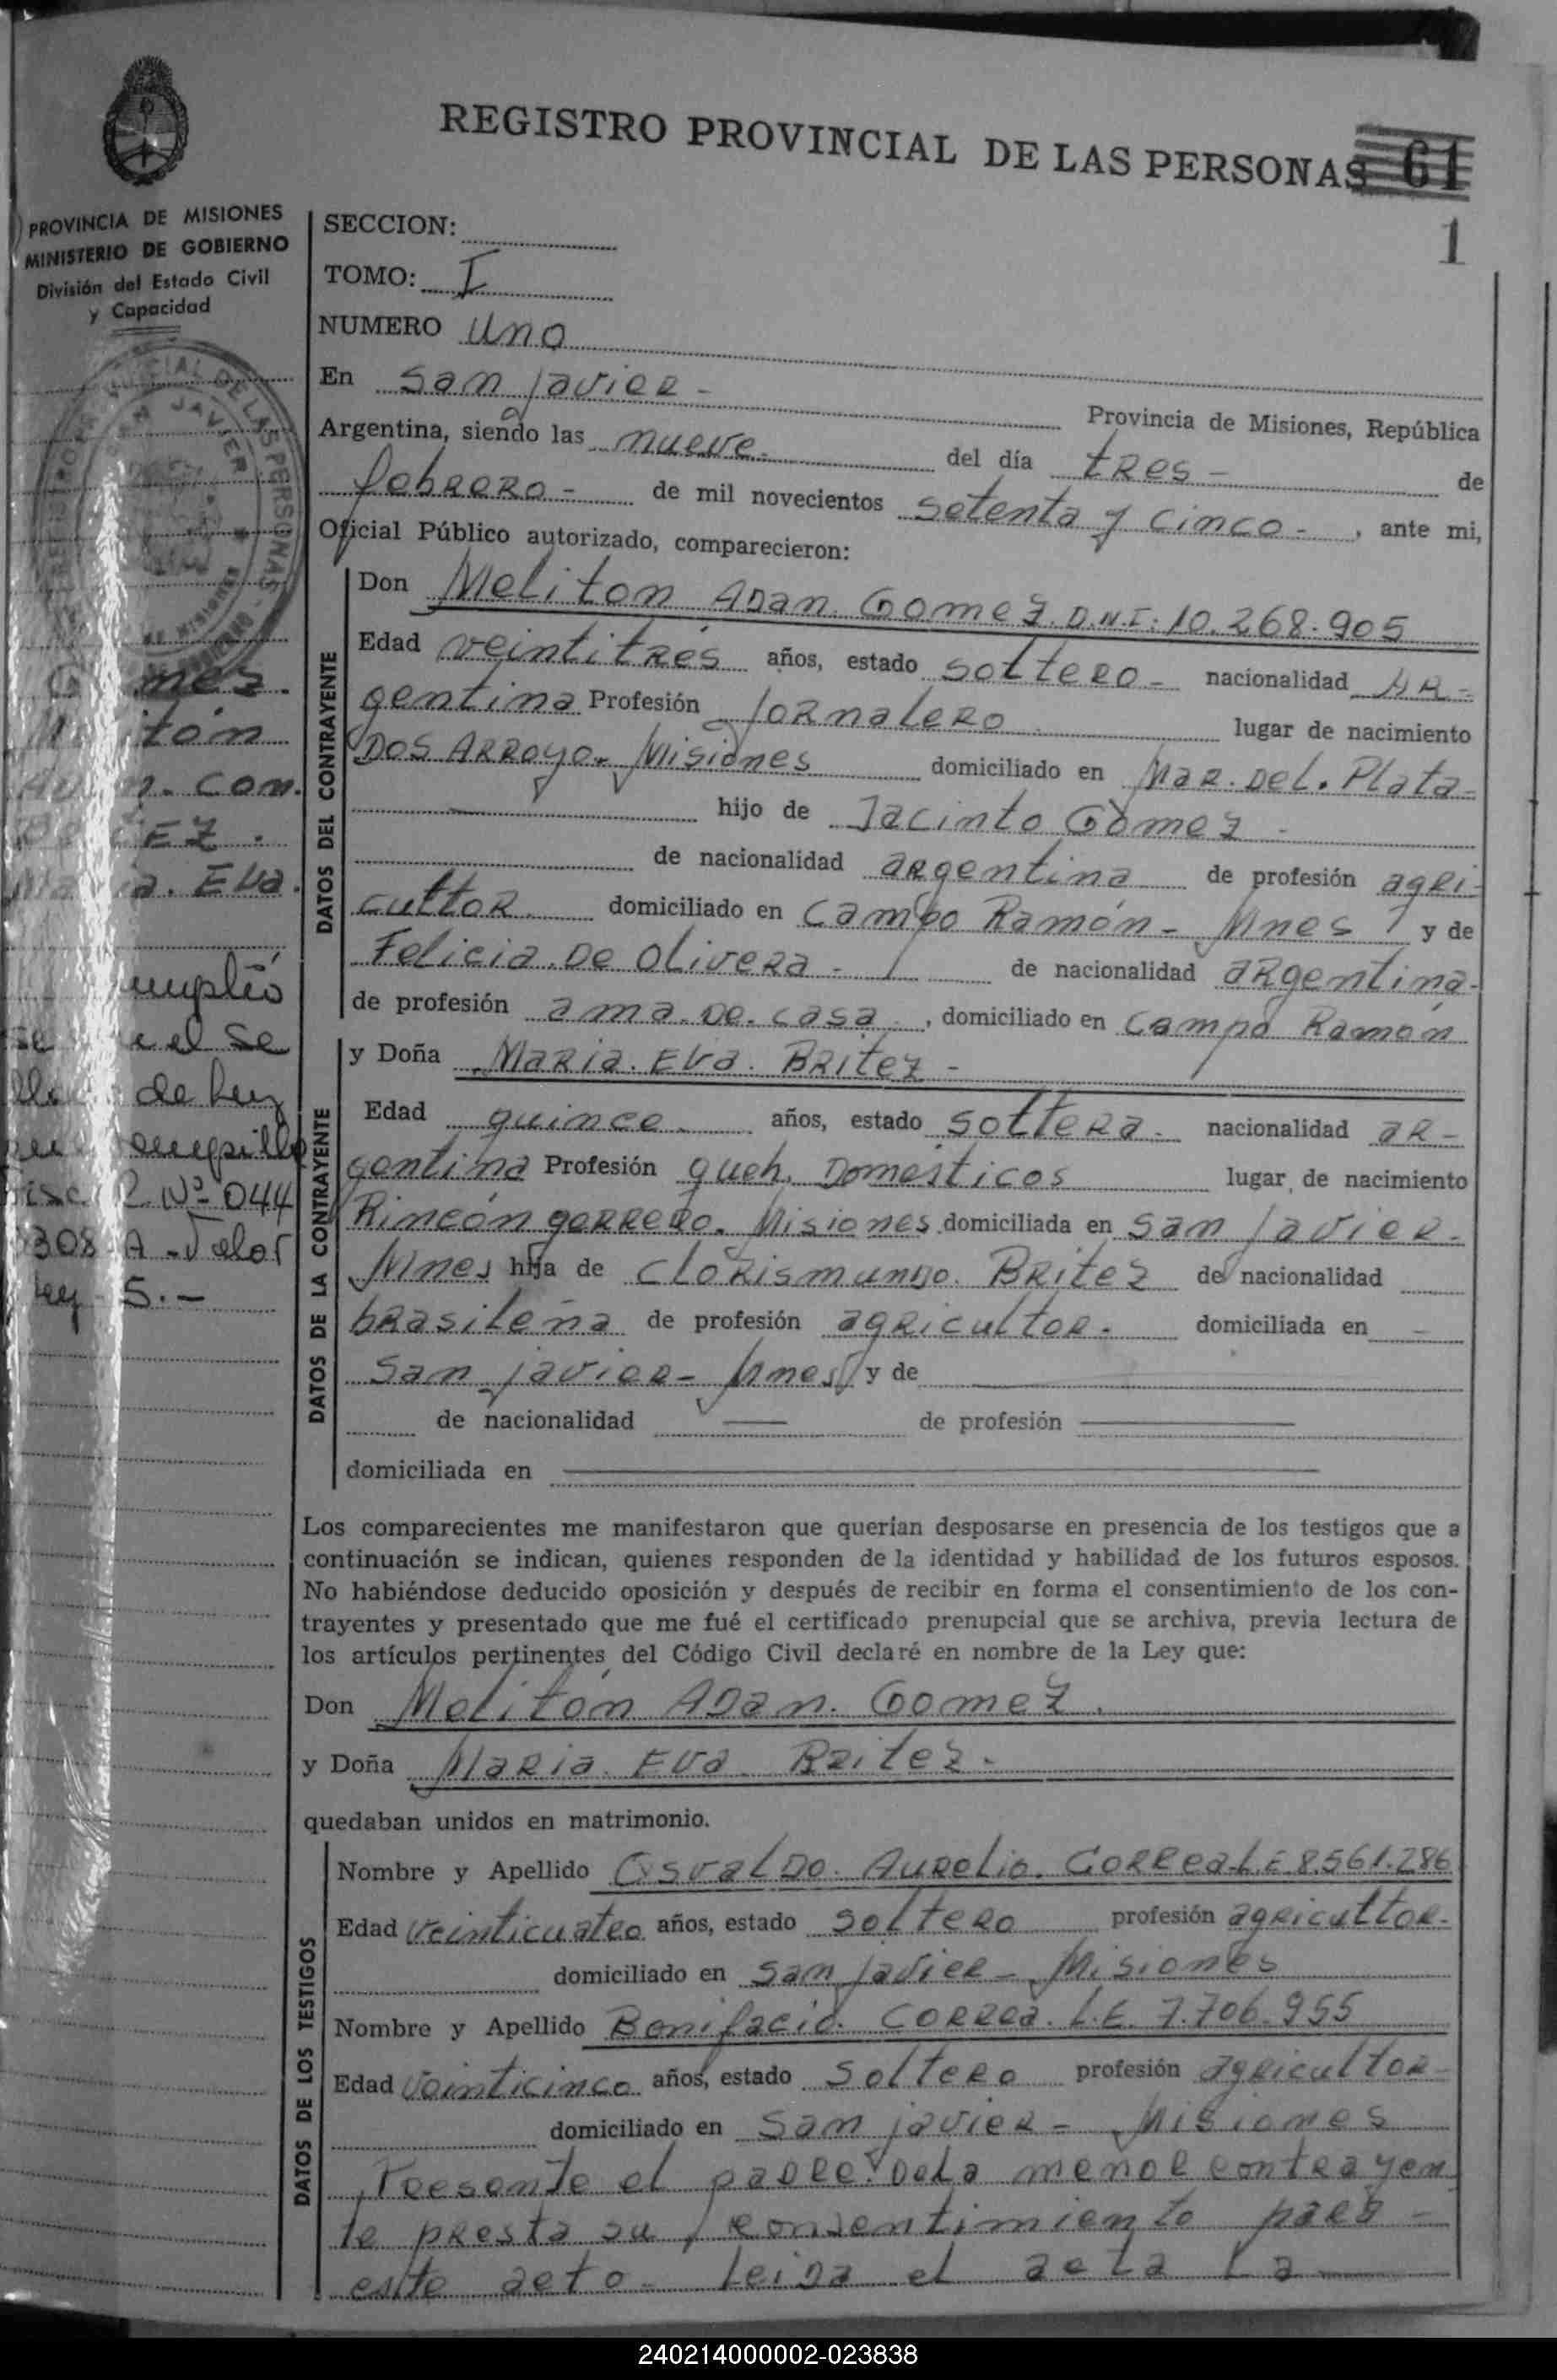 REGISTRO PROVINCIAL DE LAS PERSONAS 61
1
PROVINCIA DE MISIONES
MINISTERIO DE GOBIERNO
División del Estado Civil
y Capacidad
SAN JAVIER
Gomez.
Melitón
Adan. con.
BRITEZ.
Maria. Eva.
cumplió
se el se
llo de ley
en ompillo
Fisc Nº 044
308 A - Valor
ley 5.-
SECCION:
TOMO: I
NUMERO uno
En San javier -
Provincia de Misiones, República
Argentina, siendo las nueve. del día tres - de
febrero - de mil novecientos setenta y cinco - , ante mi,
Oficial Público autorizado, comparecieron:
DATOS DEL CONTRAYENTE
Don Meliton ADan. Gomez. D.N.I: 10.268.905
Edad veintitrés años, estado soltero - nacionalidad AR-
gentina Profesión Jornalero lugar de nacimiento
DOS ARROYO. Misiones domiciliado en Mar. Del. Plata -
hijo de Jacinto Gomez -
de nacionalidad argentina de profesión agri-
cultor. domiciliado en campo Ramón - Mnes y de
Felicia. De Olivera - de nacionalidad argentina -
de profesión ama. De. casa. , domiciliado en campo Ramón
DATOS DE LA CONTRAYENTE
y Doña Maria. Eva. BRitez -
Edad quince. años, estado soltera - nacionalidad ar-
gentina Profesión queh. Domésticos lugar de nacimiento
Rincón gorrero. Misiones domiciliada en San Javier -
Mnes hija de clorismundo. BRitez de nacionalidad
brasileña de profesión agricultor. domiciliada en -
San javier - Mnes y de
de nacionalidad — de profesión —
domiciliada en —
Los comparecientes me manifestaron que querían desposarse en presencia de los testigos que a
continuación se indican, quienes responden de la identidad y habilidad de los futuros esposos.
No habiéndose deducido oposición y después de recibir en forma el consentimiento de los con-
trayentes y presentado que me fué el certificado prenupcial que se archiva, previa lectura de
los artículos pertinentes del Código Civil declaré en nombre de la Ley que:
Don Melitón ADan. Gomez.
y Doña Maria. Eva. Britez.
quedaban unidos en matrimonio.
DATOS DE LOS TESTIGOS
Nombre y Apellido OsvalDo. Aurelio. Correa. L.E 8.561.286
Edad veinticuatro años, estado soltero profesión agricultor.
domiciliado en San javier - Misiones
Nombre y Apellido Bonifacio. Correa. L.E. 7.706.955
Edad veinticinco años, estado soltero profesión agricultor
domiciliado en San javier - Misiones
Presente el padre. Dela menor contrayen
te presta su consentimiento para -
este acto - leida el acta La
240214000002-023838